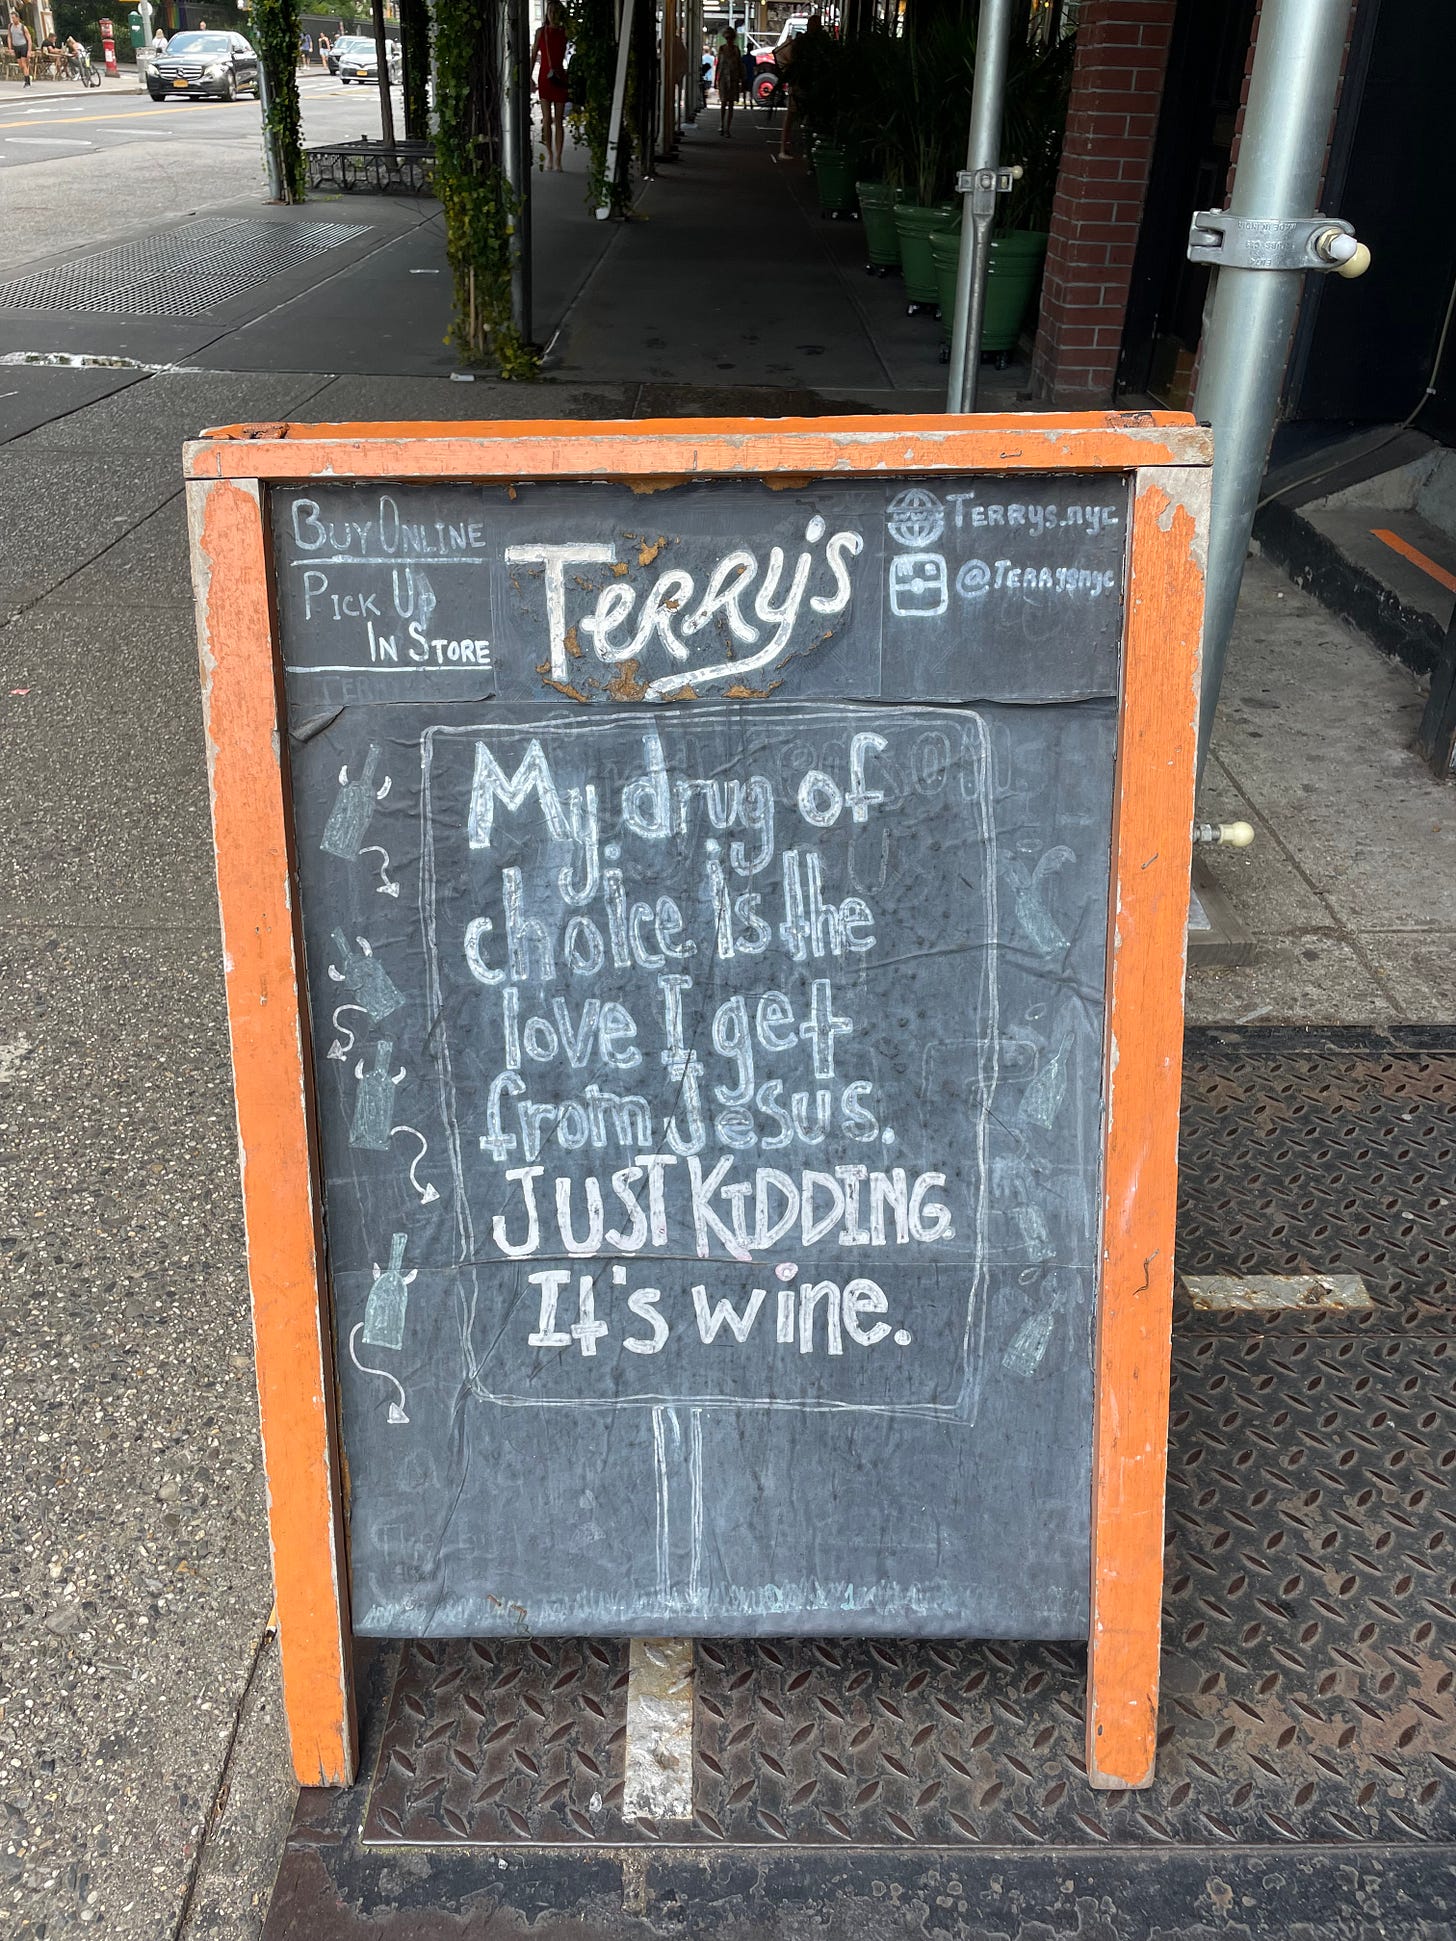 BUY ONLINE
PICK UP
IN STORE
TERRY'S
TERRYS.NYC
@TERRYSNYC
My drug of
choice is the
love I get
from Jesus.
JUST KIDDING.
It's wine.